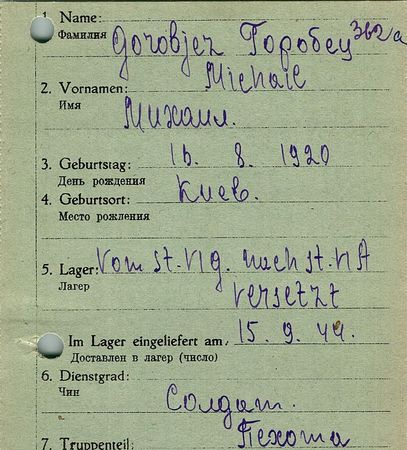 1. Name: Gorobjez Горобец 362a
Фамилия
Michail
2. Vornamen:
Имя
Михаил.
3. Geburtstag: 16. 8. 1920
День рождения
4. Geburtsort: Киев.
Место рождения
5. Lager: Vom St. VIG. nach St. VIA
Лагер
versetzt
Im Lager eingeliefert am: 15. 9. 44.
Доставлен в лагер (число)
6. Dienstgrad:
Чин
Солдат.
7. Truppenteil: Пехота